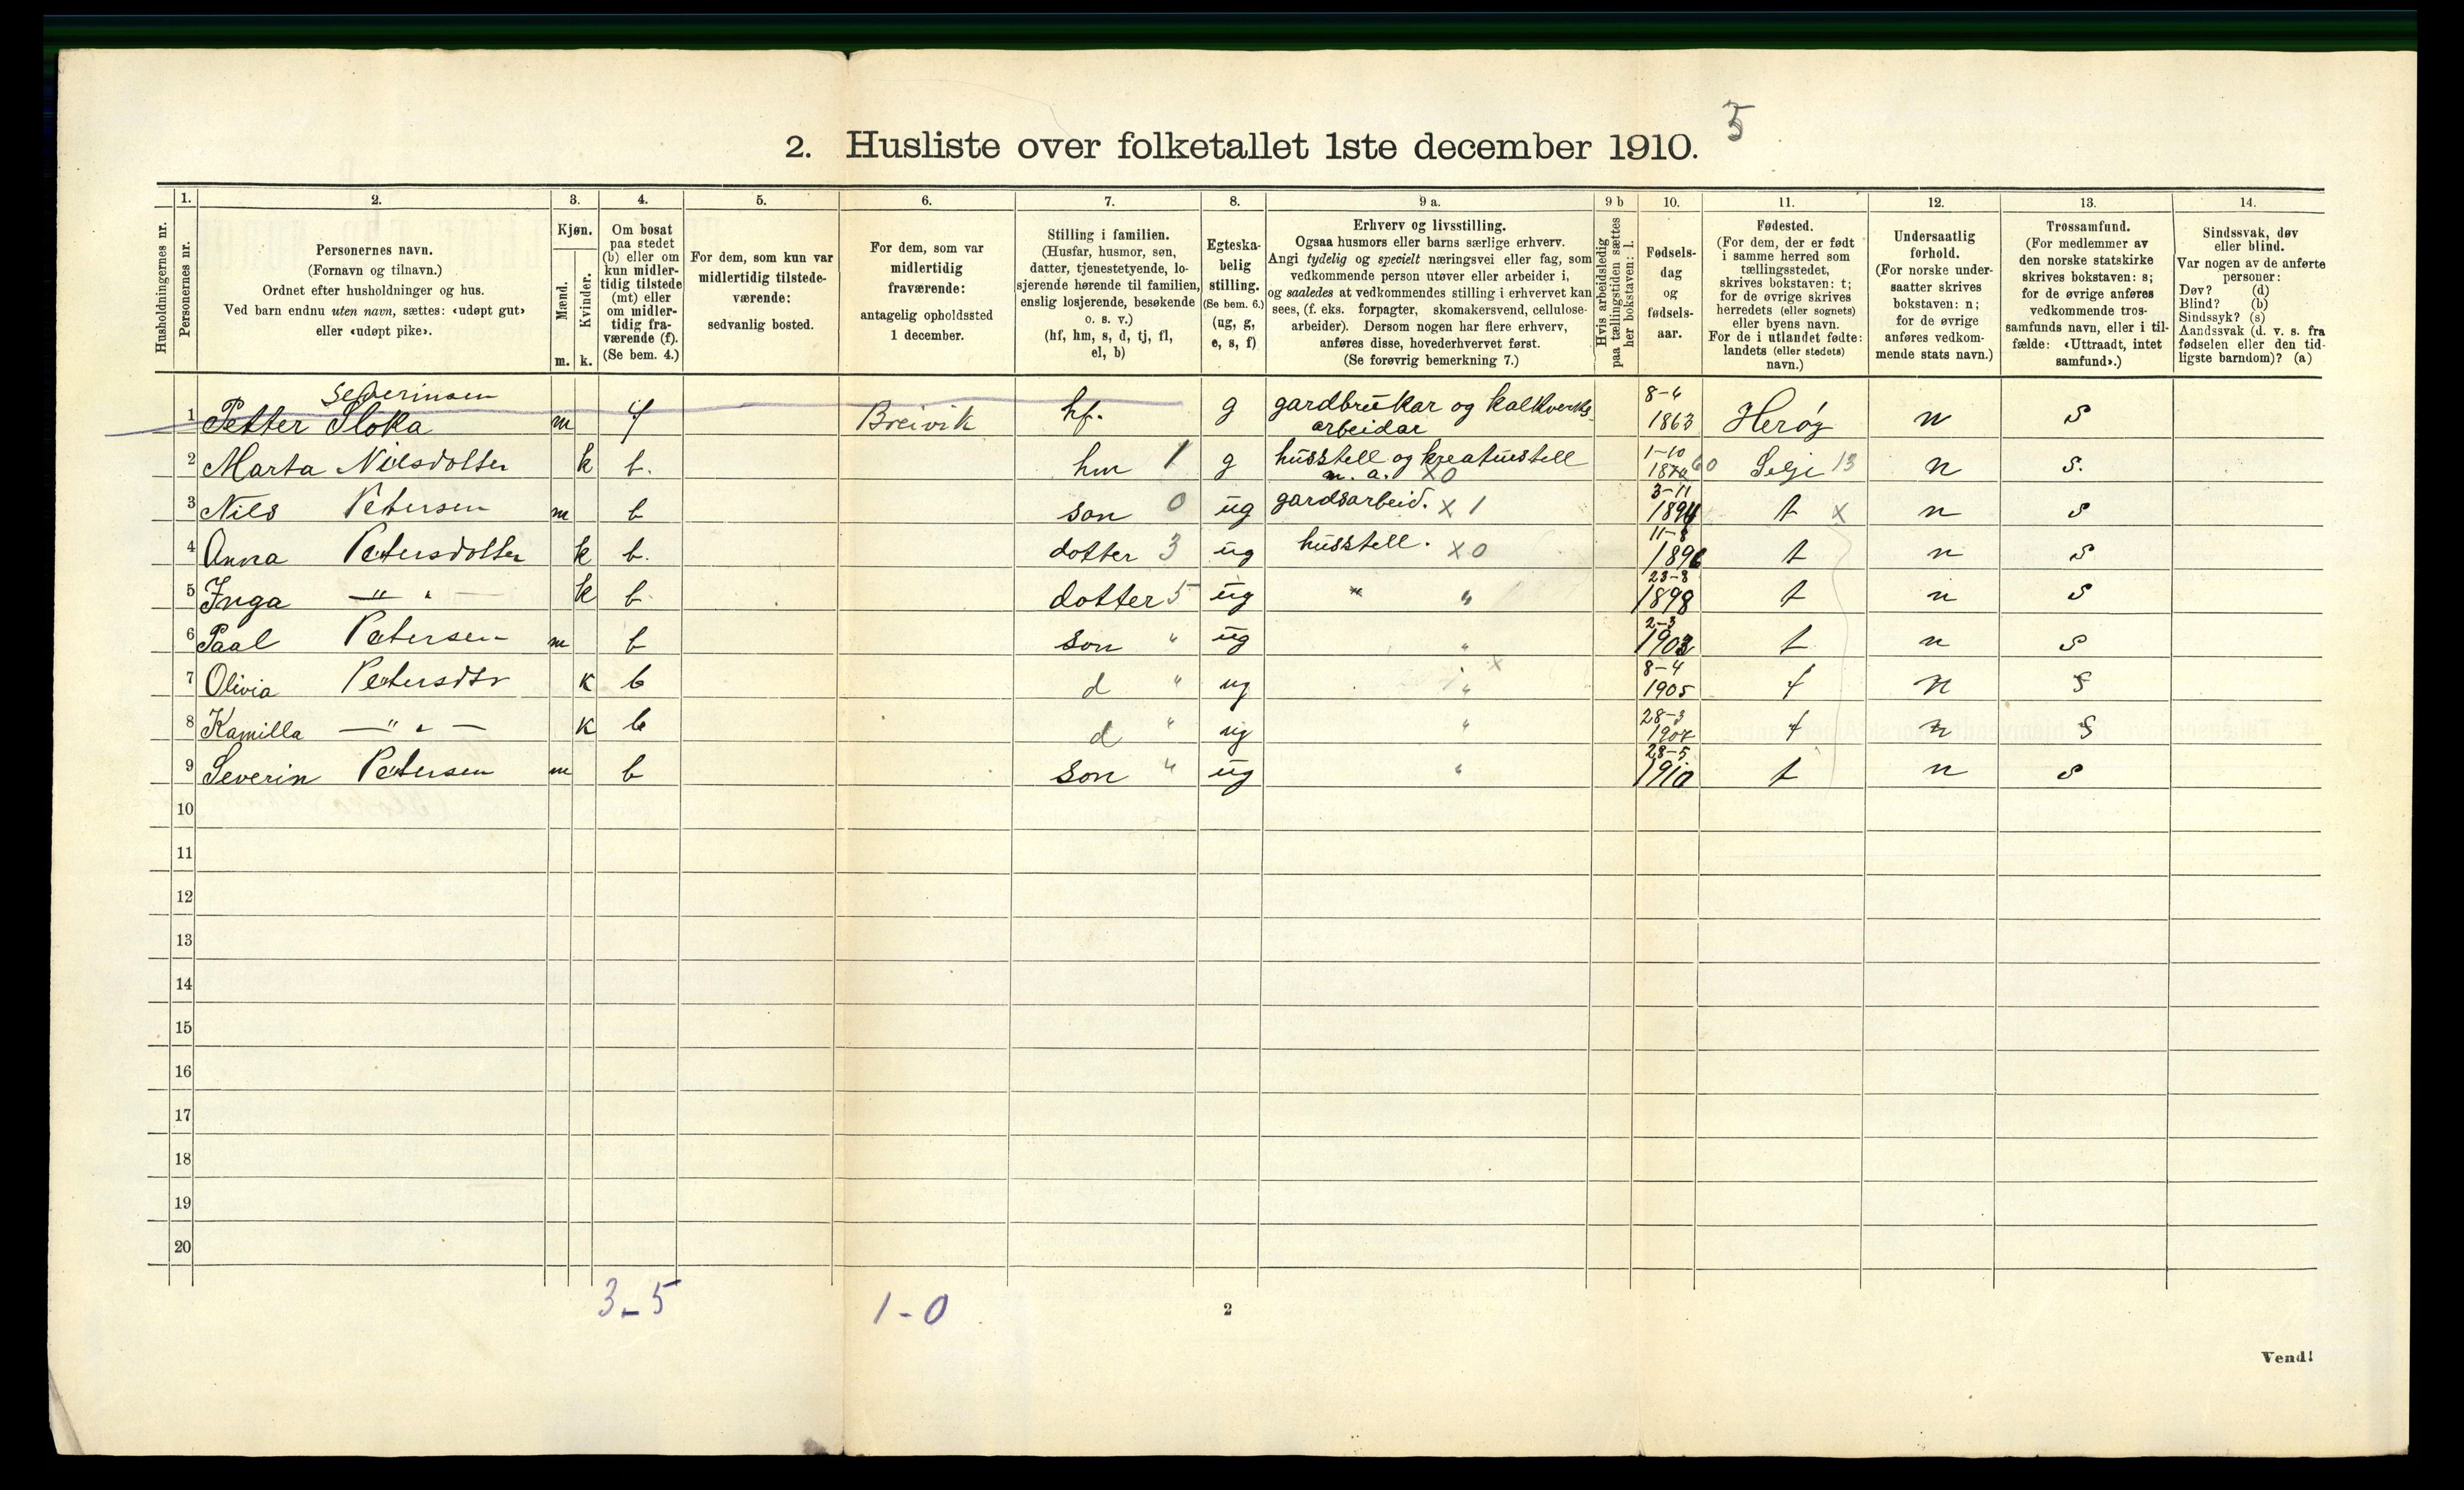 2. Husliste over folketallet 1ste december 1910. 5
Husholdningernes nr.
1.
Personernes nr.
2.
Personernes navn.
(Fornavn og tilnavn.)
Ordnet efter husholdninger og hus.
Ved barn endnu uten navn, sættes: «udøpt gut»
eller «udøpt pike».
3.
Kjøn.
Mænd.
m.
Kvinder.
k.
4.
Om bosat
paa stedet
(b) eller om
kun midler-
tidig tilstede
(mt) eller
om midler-
tidig fra-
værende (f).
(Se bem. 4.)
5.
For dem, som kun var
midlertidig tilstede-
værende:
sedvanlig bosted.
6.
For dem, som var
midlertidig
fraværende:
antagelig opholdssted
1 december.
7.
Stilling i familien.
(Husfar, husmor, søn,
datter, tjenestetyende, lo-
sjerende hørende til familien,
enslig losjerende, besøkende
o. s. v.)
(hf, hm, s, d, tj, fl,
el, b)
8.
Egteska-
belig
stilling.
(Se bem. 6.)
(ug, g,
e, s, f)
9 a.
Erhverv og livsstilling.
Ogsaa husmors eller barns særlige erhverv.
Angi tydelig og specielt næringsvei eller fag, som
vedkommende person utøver eller arbeider i,
og saaledes at vedkommendes stilling i erhvervet kan
sees, (f. eks. forpagter, skomakersvend, cellulose-
arbeider). Dersom nogen har flere erhverv,
anføres disse, hovederhvervet først.
(Se forøvrig bemerkning 7.)
9 b
Hvis arbeidsledig
paa tællingstiden sættes
her bokstaven: l.
10.
Fødsels-
dag
og
fødsels-
aar.
11.
Fødested.
(For dem, der er født
i samme herred som
tællingsstedet,
skrives bokstaven: t;
for de øvrige skrives
herredets (eller sognets)
eller byens navn.
For de i utlandet fødte:
landets (eller stedets)
navn.)
12.
Undersaatlig
forhold.
(For norske under-
saatter skrives
bokstaven: n;
for de øvrige
anføres vedkom-
mende stats navn.)
13.
Trossamfund.
(For medlemmer av
den norske statskirke
skrives bokstaven: s;
for de øvrige anføres
vedkommende tros-
samfunds navn, eller i til-
fælde: «Uttraadt, intet
samfund».)
14.
Sindssvak, døv
eller blind.
Var nogen av de anførte
personer:
Døv? (d)
Blind? (b)
Sindssyk? (s)
Aandssvak (d. v. s. fra
fødselen eller den tid-
ligste barndom)? (a)
Severinsen 8-4
1 Petter Sloka m f Breivik hf. g gardbrukar og kalkverks arbeidar 1863 Herøy n s
1-10
2 Marta Nilsdotter k b. hm 1 g husstell og kreaturstell 60 Selje 13 n s.
n. a. x0
3-11
3 Nils Petersen m b son 0 ug gardsarbeid. x 1 1894 t x n s
11-8
4 Anna Petersdotter k b. dotter 3 ug husstell. x0 1896 t n s
23-8
5 Inga — " — k b. dotter 5 ug " " 1898 t n s
2-3
6 Paal Petersen m b son " ug " 1903 t n s
8-4
7 Olivia Petersdtr k b d " ug " x 1905 t n s
28-3
8 Kamilla — " — k b d " ug " t n s
28-5
9 Severin Petersen m b son " ug " 1910 t n s
10
11
12
13
14
15
16
17
18
19
20
3-5 1-0 2
Vend!